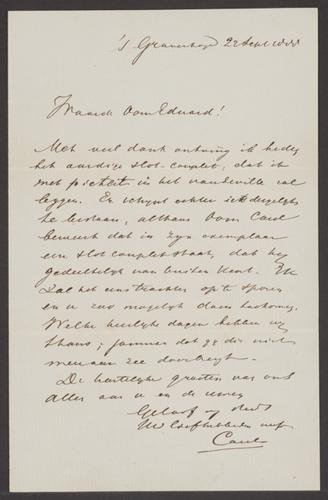 's Gravenhage 22 Sept
Waarde Oom Eduard!
Met veel dank ontving ik heden
het aardige slot-couplet, dat ik
met piëteit in het vaudeville zal
leggen. Er schijnt echter iets dergelijks
te bestaan, althans Oom Carel
beweert dat in zijn exemplaar
een slotcouplet staat, dat hij
gedeeltelijk van buiten kent. Ik
zal het eens trachten op te sporen
en u zoo mogelijk doen toekomen.
Welke heerlijke dagen hebben wij
thans; jammer dat gij die niet
meer aan zee doorbrengt.
De hartelijke groeten van ons
allen aan u en de uwen
Geloof mij steeds
Uw liefhebbenden neef
Carel